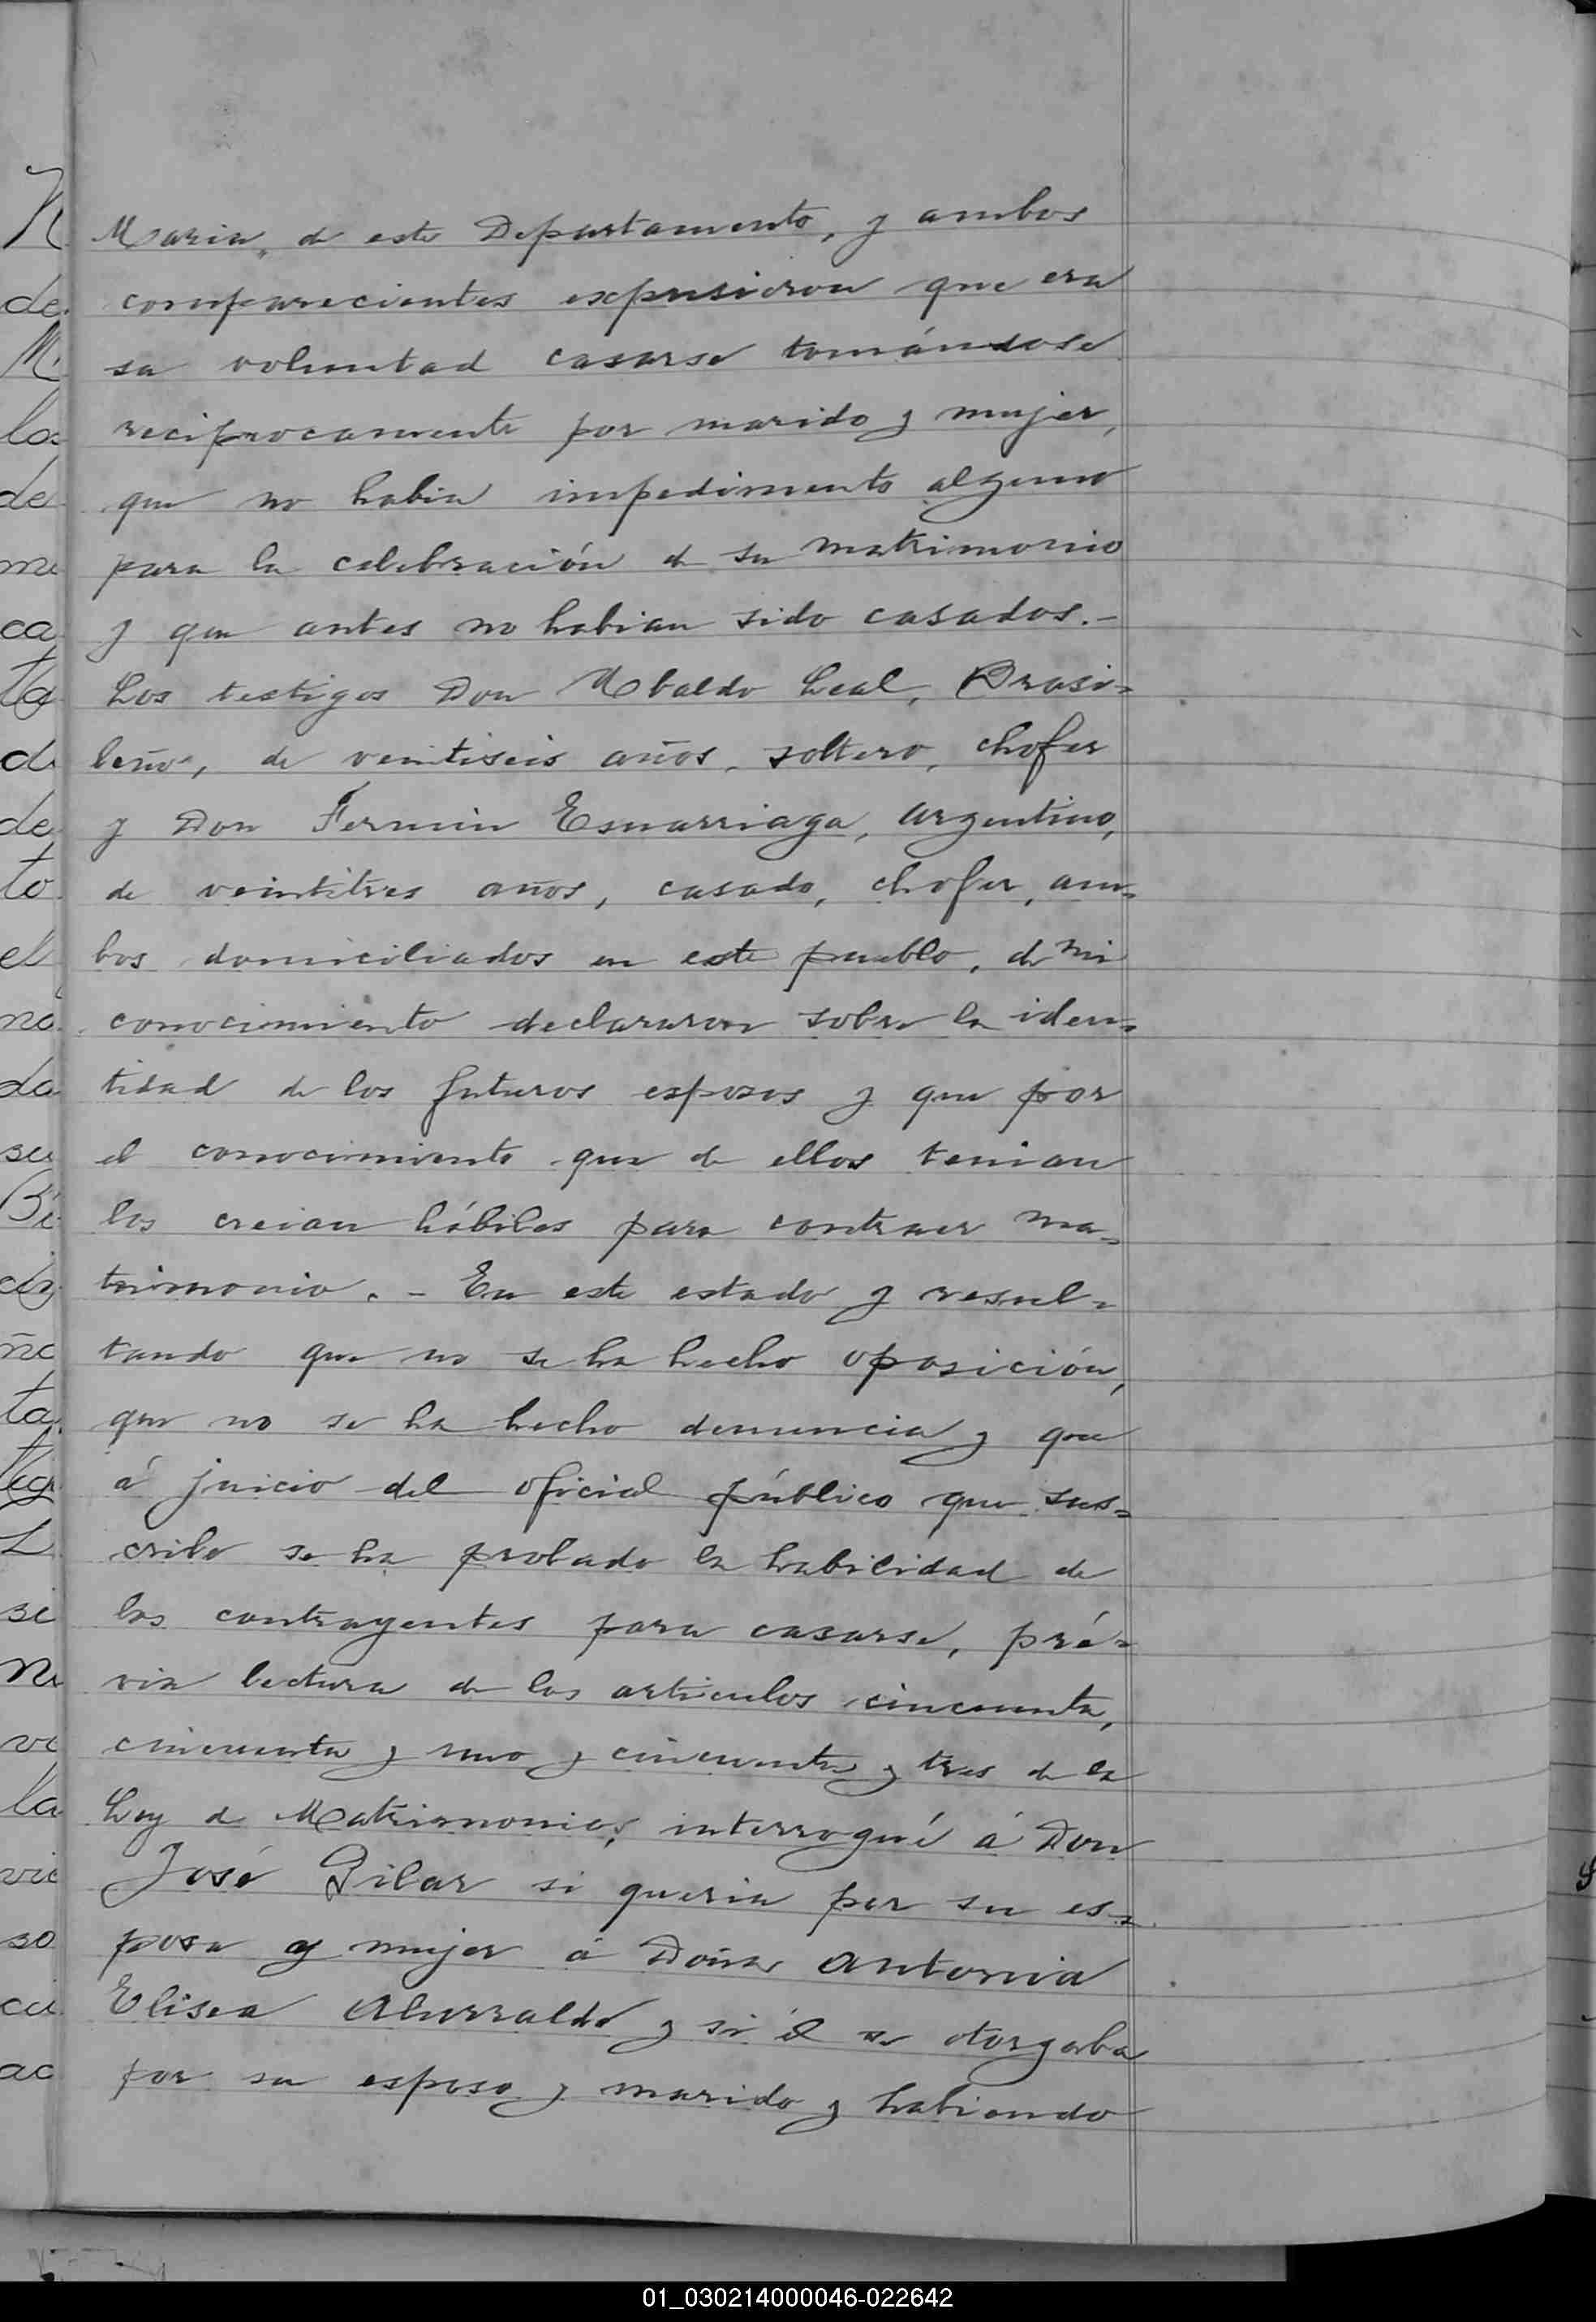 Maria„ de este Departamento, y ambos
comparecientes expusieron que era
su voluntad casarse tomándose
reciprocamente por marido y mujer,
que no habia impedimento alguno
para la celebración de su matrimonio
y que antes no habian sido casados.-
Los testigos Don Ubaldo Leal, Brasi=
leño, de veintiseis años, soltero, chofer
y Don Fermin Esnarriaga, argentino,
de veintitres años, casado, chofer, am=
bos domiciliados en este pueblo, de mi
conocimiento declararon sobre la iden=
tidad de los futuros esposos y que por
el conocimiento que de ellos tenian
los creian hábiles para contraer ma=
trimonio. - En este estado y resul=
tando que no se ha hecho oposición,
que no se ha hecho denuncia y que
á juicio del oficial público que sus=
cribe se ha probado la habilidad de
los contrayentes para casarse, pré=
via lectura de los articulos cincuenta,
cincuenta y uno y cincuenta y tres de la
Ley de Matrimonios, interrogué á Don
José Pilar si queria por su es=
posa y mujer á Doña Antonia
Elisea Alurralde y si él se otorgaba
por su esposo y marido y habiendo
N
de
M
los
de
me
ca
ta
de
to
el
na
da
su
ño
ta
L
si
la
vic
so
ac
01_030214000046-022642